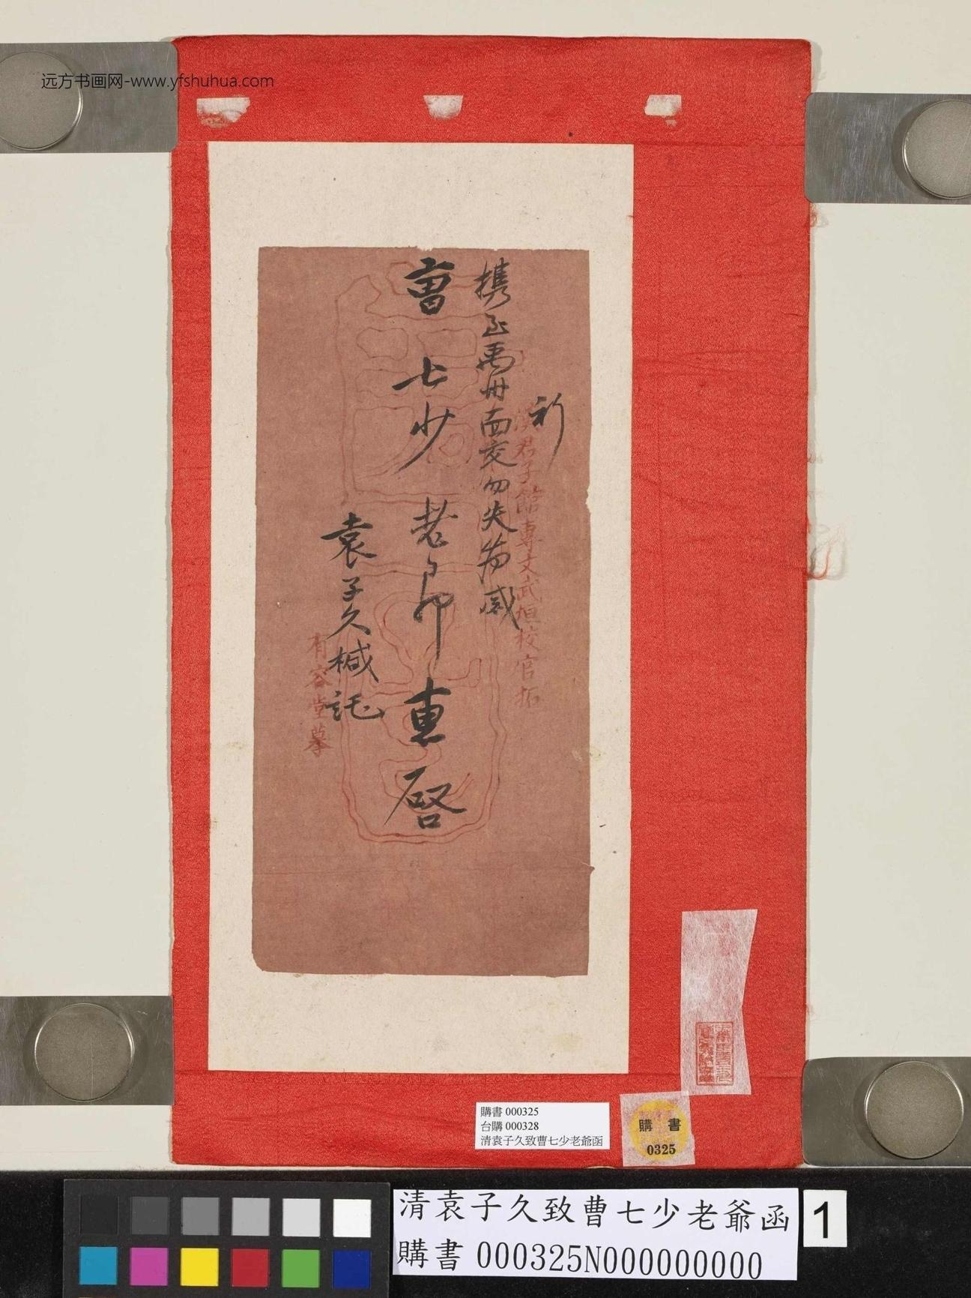 远方书画网-www.yfshuhua.com
祈
携至禹州面交勿失为感
曹七少老爷惠啓
袁子久椷託
君子館專文武垣校官拓
有容堂摹
購書 000325
台購 000328
清袁子久致曹七少老爺函
購 書
0325
清袁子久致曹七少老爺函
購書 000325N000000000
1